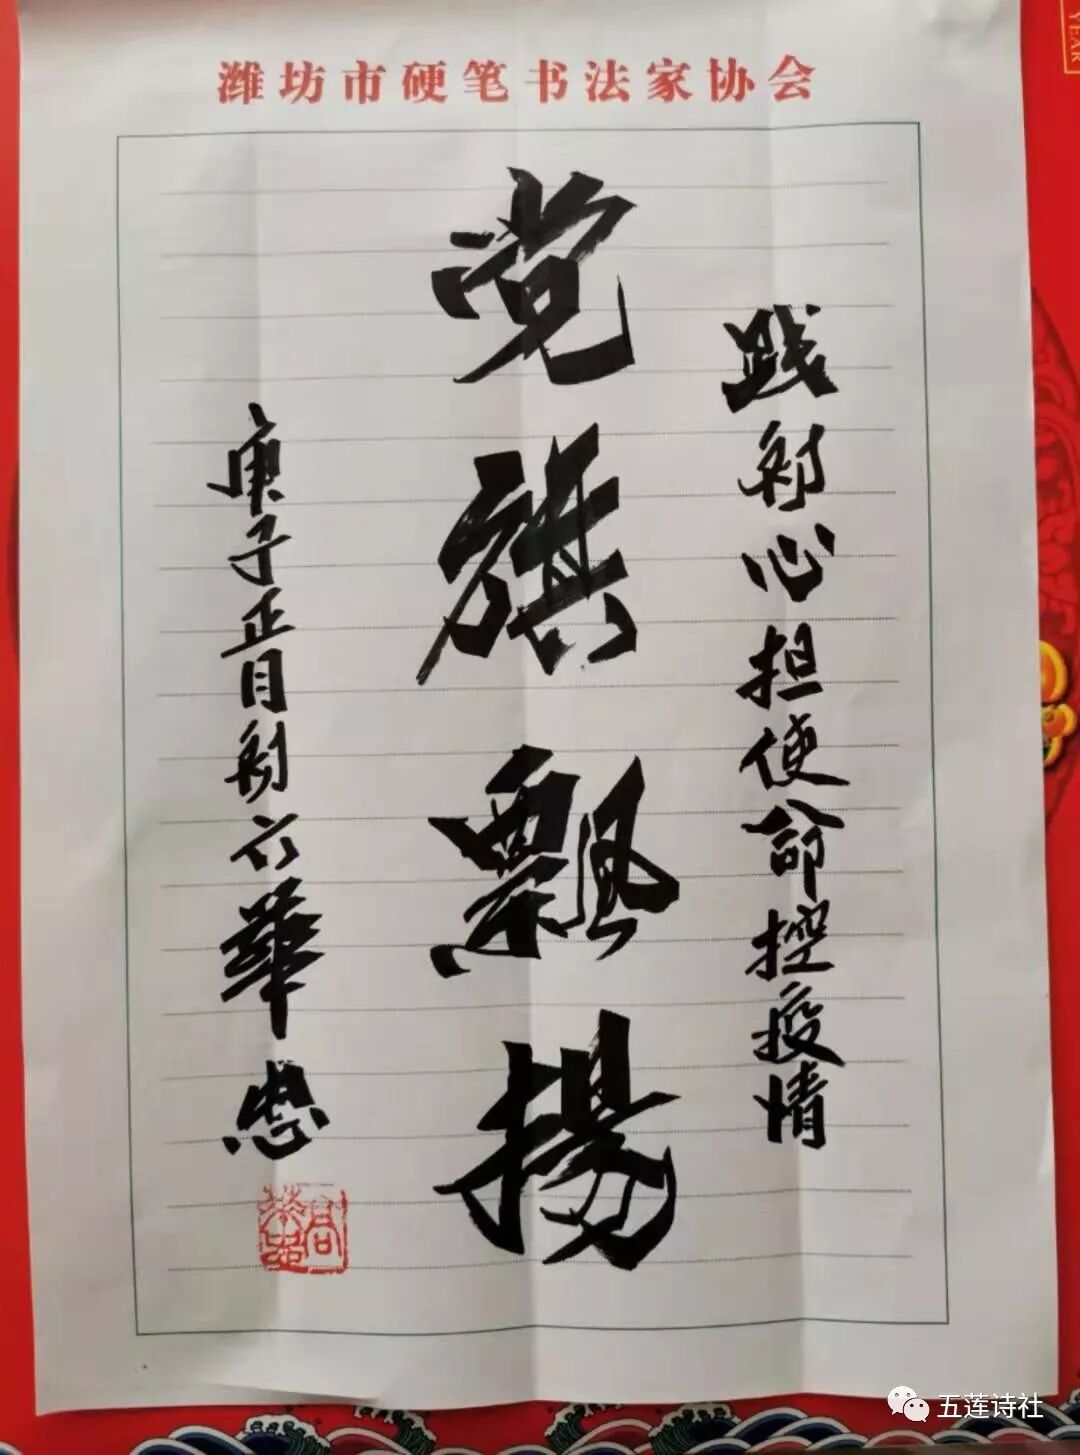 潍坊市硬笔书法家协会
践初心担使命控疫情
党旗飘扬
庚子正月初六華忠
五莲诗社
YEAR